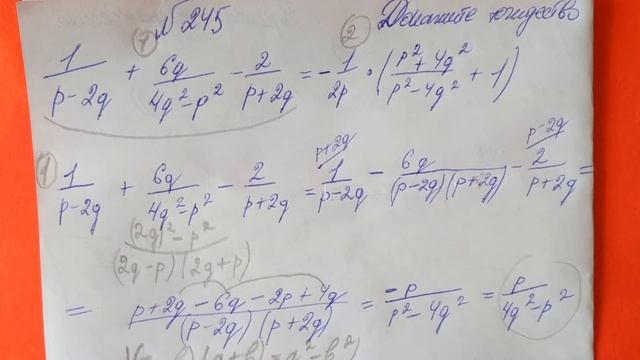 № 245 ② Докажите тождество
① 1/(p-2q) + 6q/(4q²-p²) - 2/(p+2q) = -1/2p · (p²+4q²/p²-4q² + 1)
p+2q p-2q
① 1/(p-2q) + 6q/(4q²-p²) - 2/(p+2q) = 1/(p-2q) - 6q/((p-2q)(p+2q)) - 2/(p+2q) =
(2q)²-p²
(2q-p)(2q+p)
= (p+2q-6q-2p+4q)/((p-2q)(p+2q)) = -p/(p²-4q²) = p/(4q²-p²)
(a+b)=a²-b²)